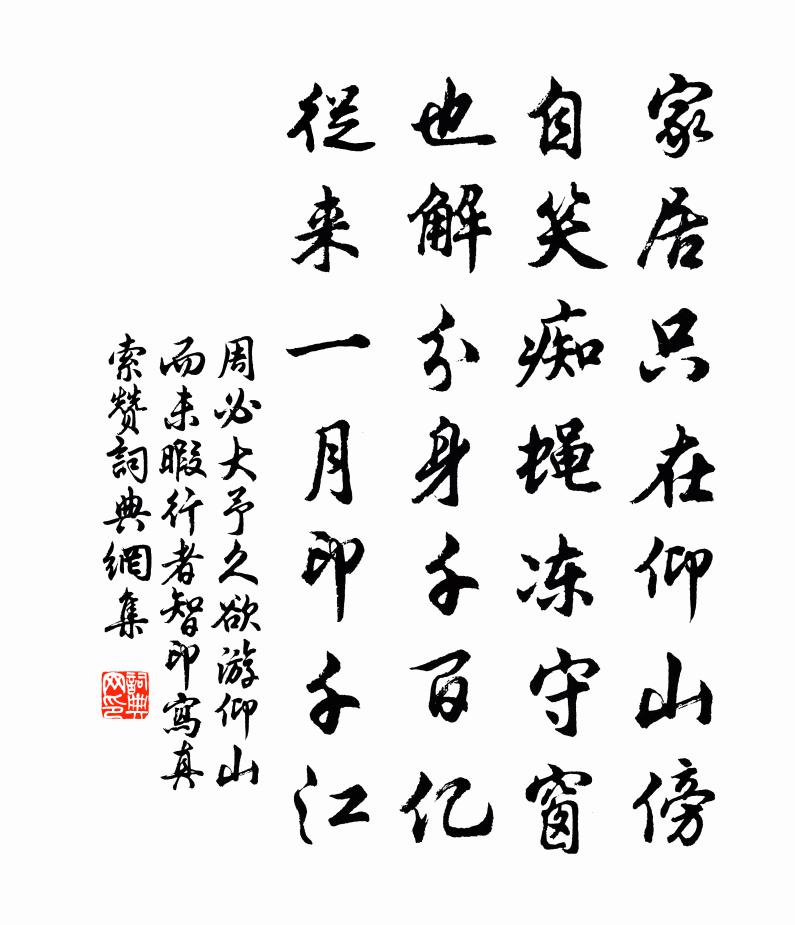 家居只在仰山傍
自笑痴蝇冻守窗
也解分身千百亿
従来一月印千江
周必大予久欲游仰山
而未暇行者智印寫真
索赞詞典網集
詞典网印